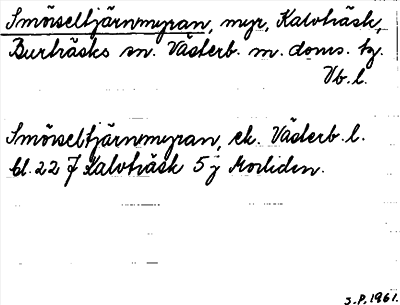 Smörseltjärnmyran, myr, Kalvträsk,
Burträsks sn. Västerb. m. doms. tg.
Vb. l.
Smörseltjärnmyran, ek. Västerb. l.
bl. 22 J Kalvträsk 5 j Morliden.
S.P. 1961.